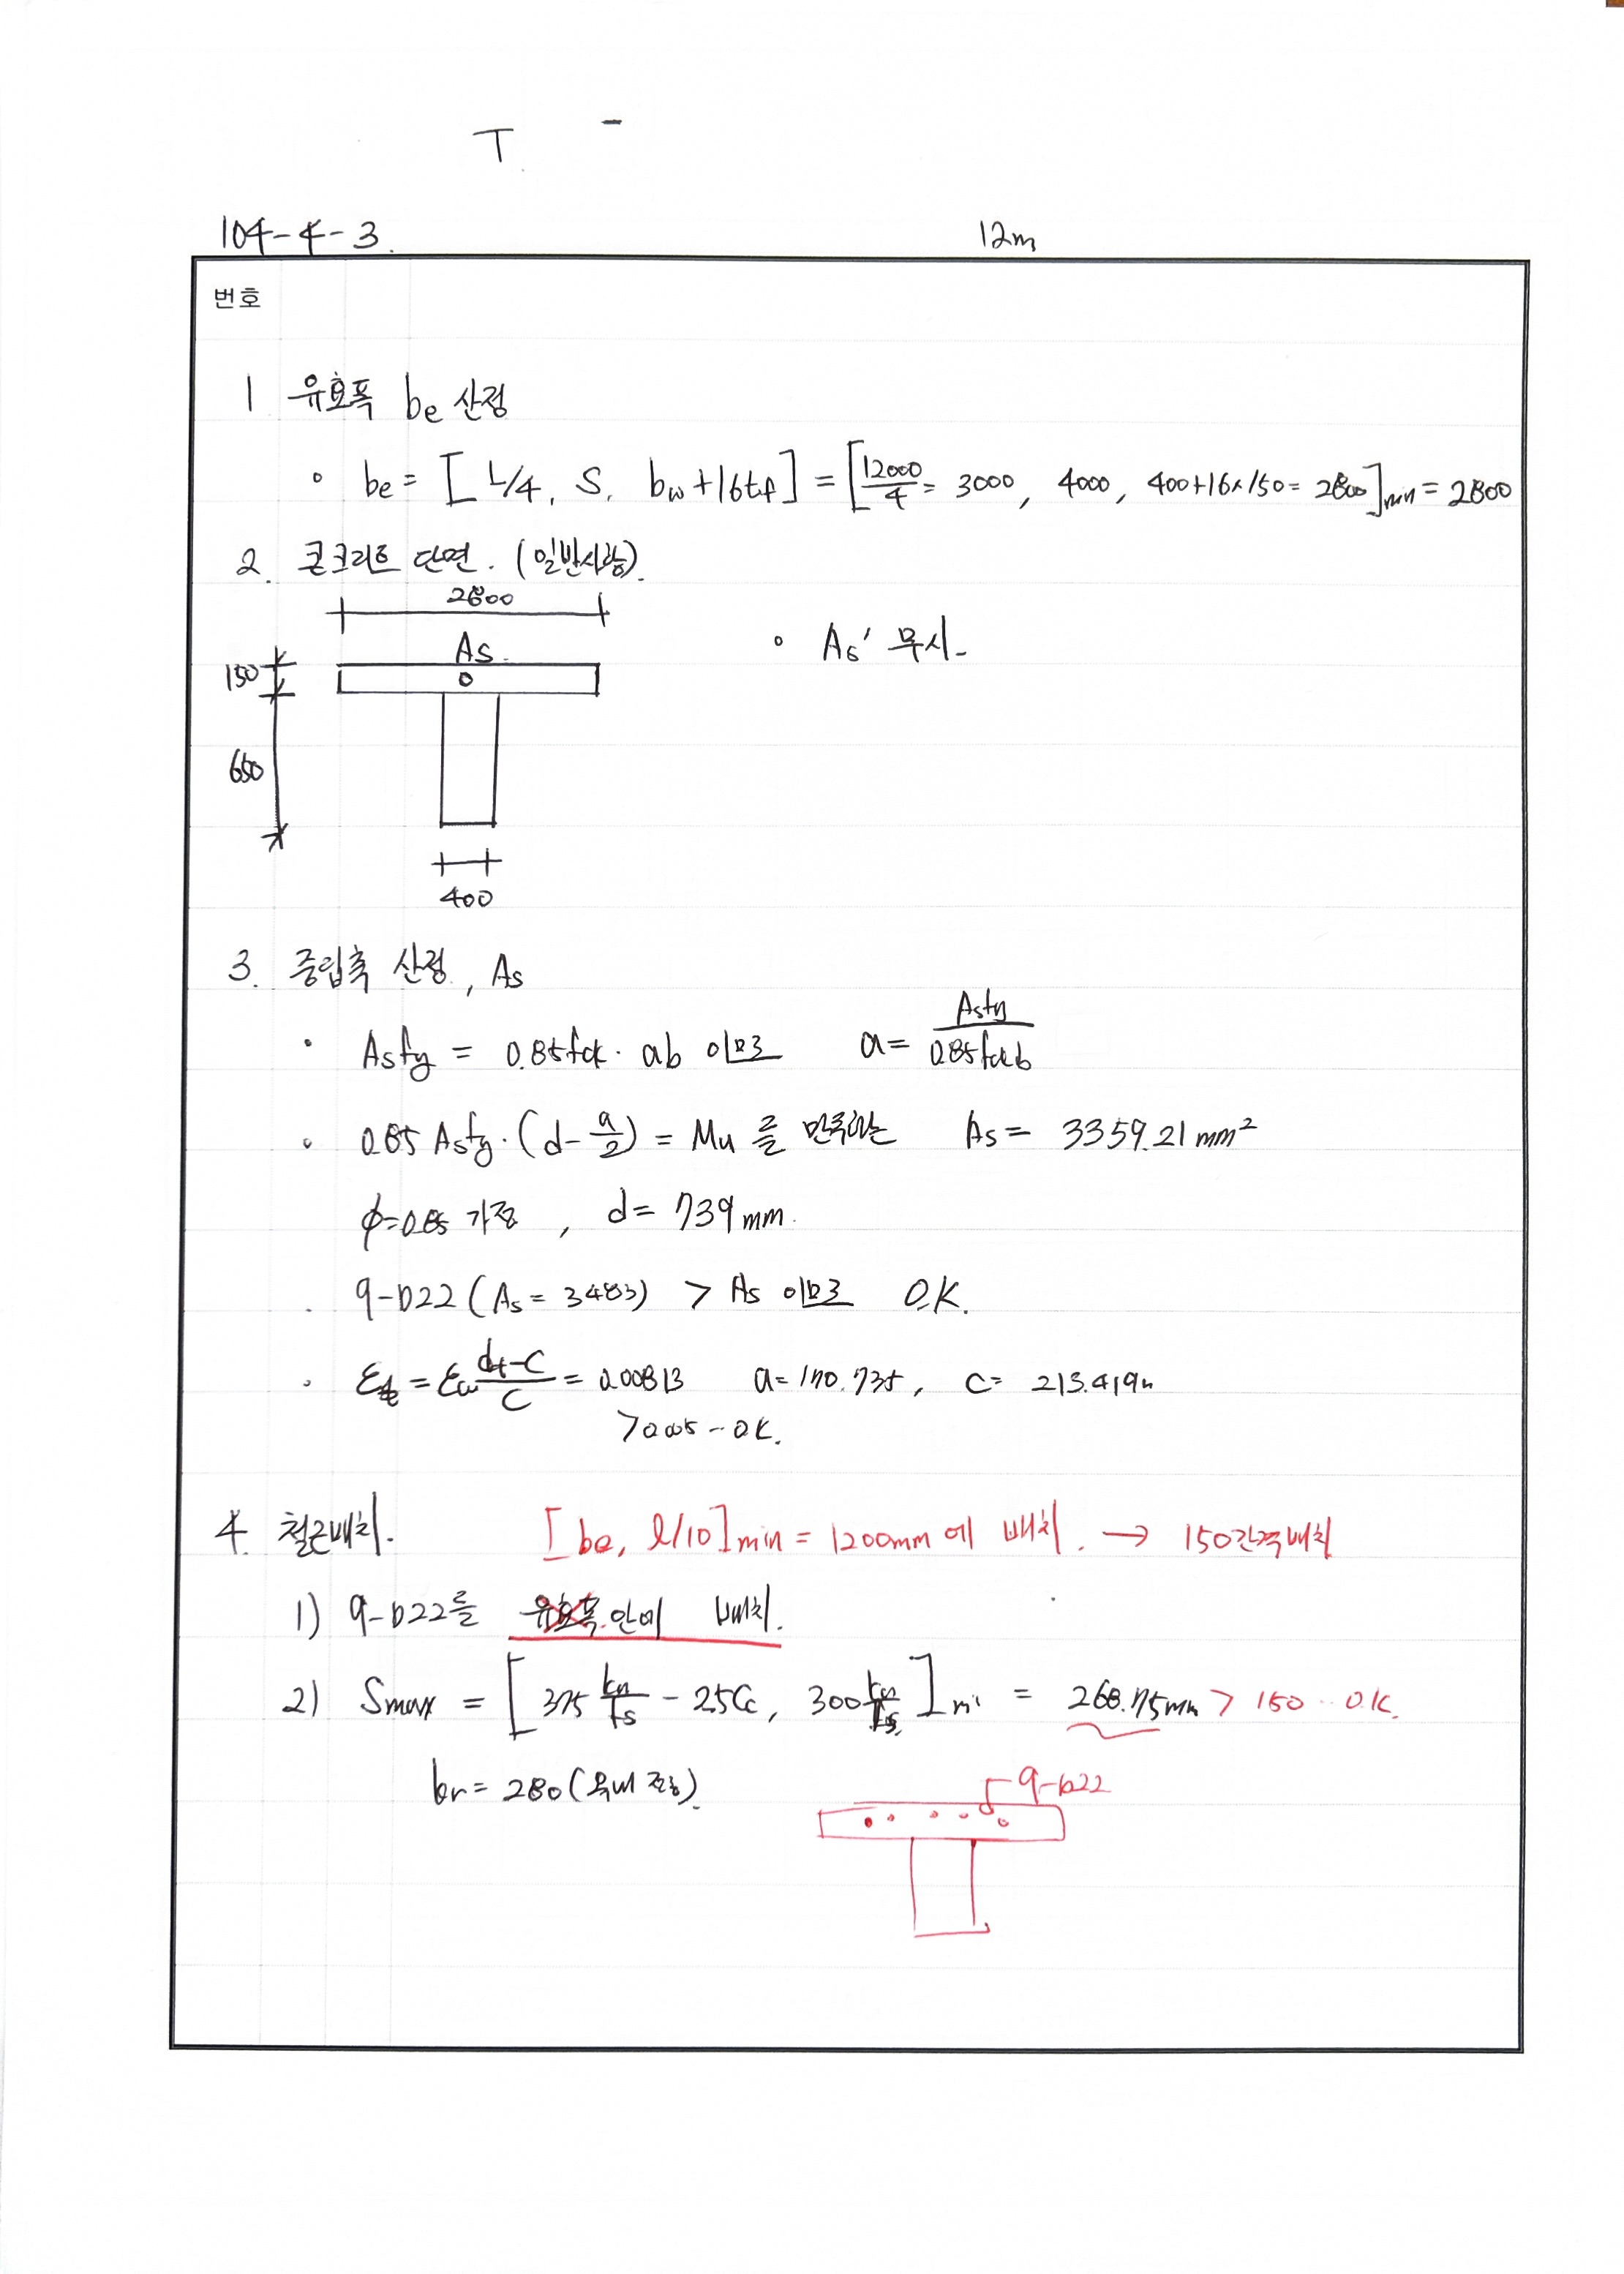 T -
104-4-3. 12m
번호
1 유효폭 be 산정
◦ be = [ L/4, S, bw+16tf ] = [ 12000/4 = 3000, 4000, 400+16×150 = 2800 ]min = 2800
2. 콘크리트 단면. (일반사항).
2800
As
150
650
400
◦ As' 무시.
3. 중립축 산정, As
· Asfy = 0.85fck· ab 이므로 a = Asfy/0.85fckb
◦ 0.85 Asfy·(d-a/2) = Mu 를 만족하는 As = 3359.21mm²
φ=0.85 가정, d = 739mm.
· 9-D22 (As = 3483) > As 이므로 O.K.
· εt = εcu dt-c/c = 0.00813 a=170.735, c= 213.419
>0.005 - OK.
4. 철근배치. [be, l/10]min = 1200mm 에 배치. → 150간격배치
1) 9-D22를 유효폭 안에 배치.
2) Smax = [ 375 kcr/fs - 2.5Cc, 300 kcr/fs ] = 268.75mm > 150 ·· O.K.
kr = 280 (옥내 건조).
9-D22